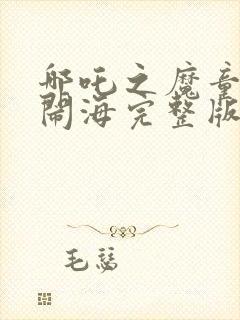 哪吒之魔童
闹海完整版
毛慈